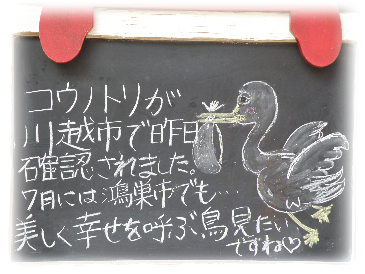 コウノトリが
川越市で昨日
確認されました。
7月には鴻巣市でも…
美しく幸せを呼ぶ鳥見たい
ですね♡